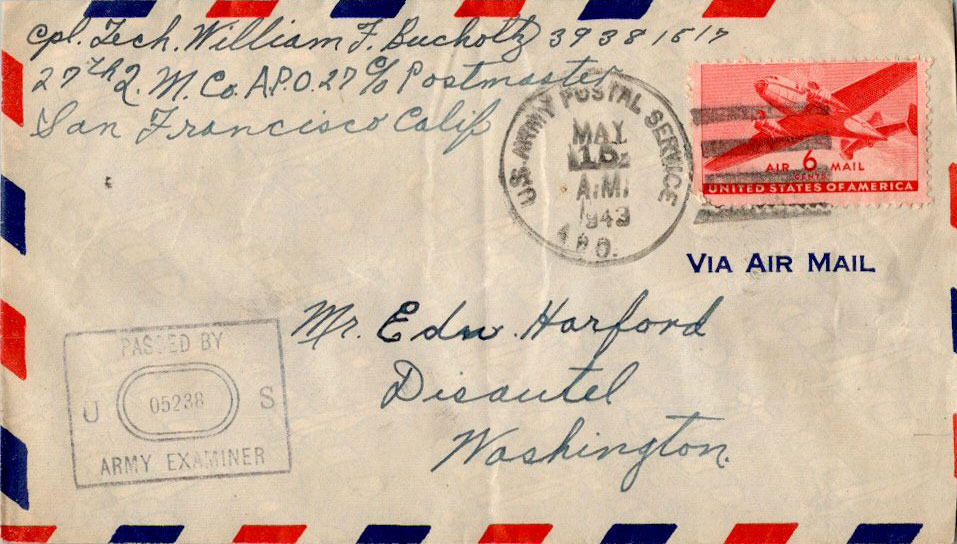 Cpl. Tech. William F. Bucholtz 39381517
27th Q. M. Co. A.P.O. 27 c/o Postmaster
San Francisco Calif
U.S. ARMY POSTAL SERVICE
MAY
15
A.M.
1943
A.P.O.
AIR 6 MAIL
CENTS
UNITED STATES OF AMERICA
VIA AIR MAIL
Mr. Edw. Harford
Disautel
Washington.
PASSED BY
U 05238 S
ARMY EXAMINER